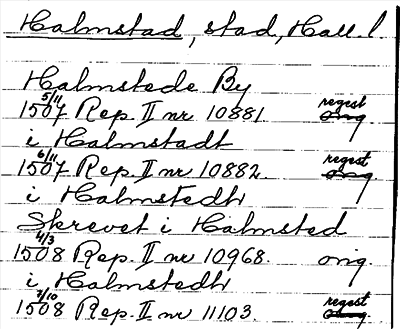 Halmstad, stad, Hall. l.
Halmstede By
5/11 1507 Rep. II nr 10881. regest orig
i Halmstadt
6/11 1507 Rep. II nr 10882. regest orig
i Halmstedh
Skrevet i Halmsted
4/3 1508 Rep. II nr 10968. orig.
i Halmstedh
7/10 1508 Rep. II nr 11103. regest orig